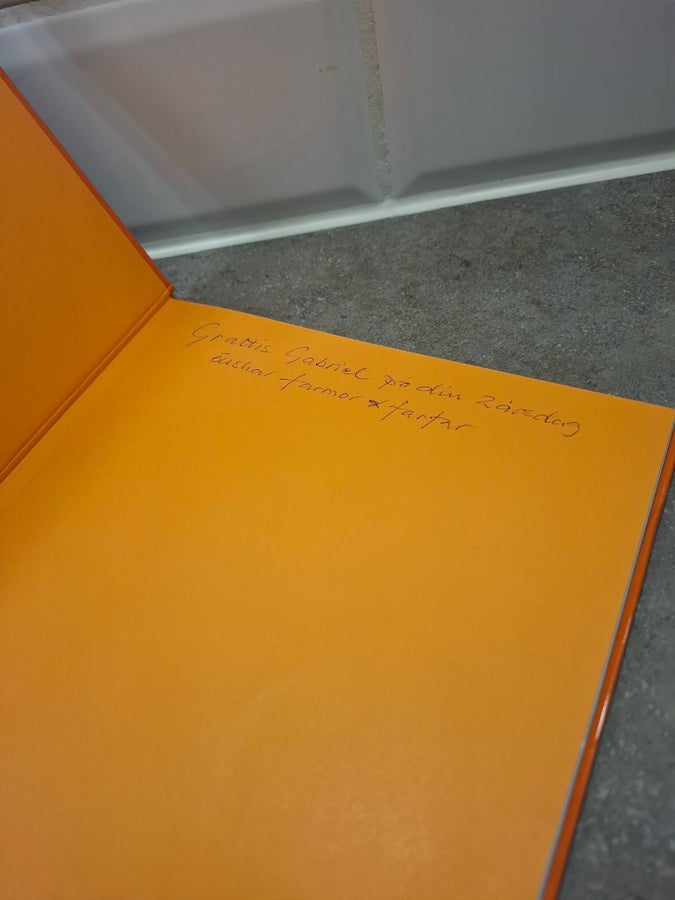 Grattis Gabriel på din 2årsdag
önskar farmor & farfar